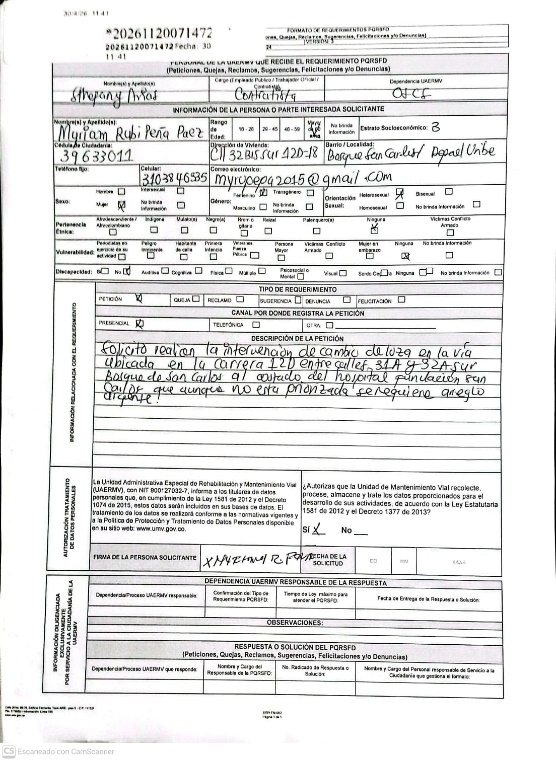 30/4/26 11:41
*20261120071472
20261120071472 Fecha: 30
11 41
FORMATO DE REQUERIMIENTOS PQRSFD
24
PERSONAL DE LA UAERMV QUE RECIBE EL REQUERIMIENTO PQRSFD
(Peticiones, Quejas, Reclamos, Sugerencias, Felicitaciones y/o Denuncias)
Nombre(s) y Apellido(s) Cargo (Empleado Público / Trabajador Oficial / Contratista) Dependencia UAERMV
Stepany Arias Contratista
INFORMACIÓN DE LA PERSONA O PARTE INTERESADA SOLICITANTE
Nombre(s) y Apellido(s): Rango de Edad: 18 - 28 29 - 45 46 - 59 Mayor de 60 No brinda Información Estrato Socioeconómico: 3
Myriam Rubi Peña Paez
Cédula de Ciudadanía: Dirección de Vivienda: Barrio / Localidad:
39633011 Cll 32BIS sur 12D-18 Bosque San Carlos / Rafael Uribe
Teléfono fijo: Celular: Correo electrónico:
3103846535 myrupepa2015@gmail.com
Sexo: Hombre Intersexual Género: Femenino Transgénero Orientación Sexual: Heterosexual Bisexual
Mujer No brinda Información Masculino No brinda Información Homosexual No brinda Información
Pertenencia Étnica: Afrodescendiente / Afrocolombiano Indígena Mulato(a) Negro(a) Brom o gitano Raizal Palenquero(a) Ninguna Víctimas Conflicto Armado
Vulnerabilidad: Periodistas en ejercicio de su actividad Peligro inminente Habitante de calle Primera Infancia Veteranos Fuerza Pública Persona Mayor Víctimas Conflicto Armado Mujer en embarazo Ninguna No brinda Información
Discapacidad: Si No Auditiva Cognitiva Física Múltiple Psicosocial o Mental Visual Sordo Ceguera Ninguna No brinda Información
INFORMACIÓN RELACIONADA CON EL REQUERIMIENTO
TIPO DE REQUERIMIENTO
PETICIÓN X QUEJA RECLAMO SUGERENCIA DENUNCIA FELICITACIÓN
CANAL POR DONDE REGISTRA LA PETICIÓN
PRESENCIAL X TELEFÓNICA OTRA
DESCRIPCIÓN DE LA PETICIÓN
Solicito realicen la intervención de cambio de loza en la vía
ubicada en la carrera 12D entre calles 31A y 32A sur
Bosque de San Carlos al costado del hospital fundación san
Carlos que aunque no esta priorizada se requiere arreglo
urgente!
AUTORIZACIÓN TRATAMIENTO DE DATOS PERSONALES
La Unidad Administrativa Especial de Rehabilitación y Mantenimiento Vial
(UAERMV), con NIT 900127032-7, informa a los titulares de datos
personales que, en cumplimiento de la Ley 1581 de 2012 y el Decreto
1074 de 2015, estos datos serán incluidos en sus bases de datos. El
tratamiento de los datos se realizará conforme a las normativas vigentes y
a la Política de Protección y Tratamiento de Datos Personales disponible
en su sitio web: www.umv.gov.co.
¿Autorizas que la Unidad de Mantenimiento Vial recolecte,
procese, almacene y trate los datos proporcionados para el
desarrollo de sus actividades, de acuerdo con la Ley Estatutaria
1581 de 2012 y el Decreto 1377 de 2013?
Sí X No
FIRMA DE LA PERSONA SOLICITANTE FECHA DE LA SOLICITUD DD MM AAAA
INFORMACIÓN DILIGENCIADA EXCLUSIVAMENTE POR SERVICIO A LA CIUDADANÍA DE LA UAERMV
DEPENDENCIA UAERMV RESPONSABLE DE LA RESPUESTA
Dependencia/Proceso UAERMV responsable: Confirmación del Tipo de Requerimiento PQRSFD: Tiempo de Ley máximo para atender el PQRSFD: Fecha de Entrega de la Respuesta o Solución:
OBSERVACIONES:
RESPUESTA O SOLUCIÓN DEL PQRSFD
(Peticiones, Quejas, Reclamos, Sugerencias, Felicitaciones y/o Denuncias)
Dependencia/Proceso UAERMV que responde: Nombre y Cargo del Responsable de la PQRSFD: No. Radicado de Respuesta o Solución: Nombre y Cargo del Personal responsable de Servicio a la Ciudadanía que gestiona el formato:
CS Escaneado con CamScanner